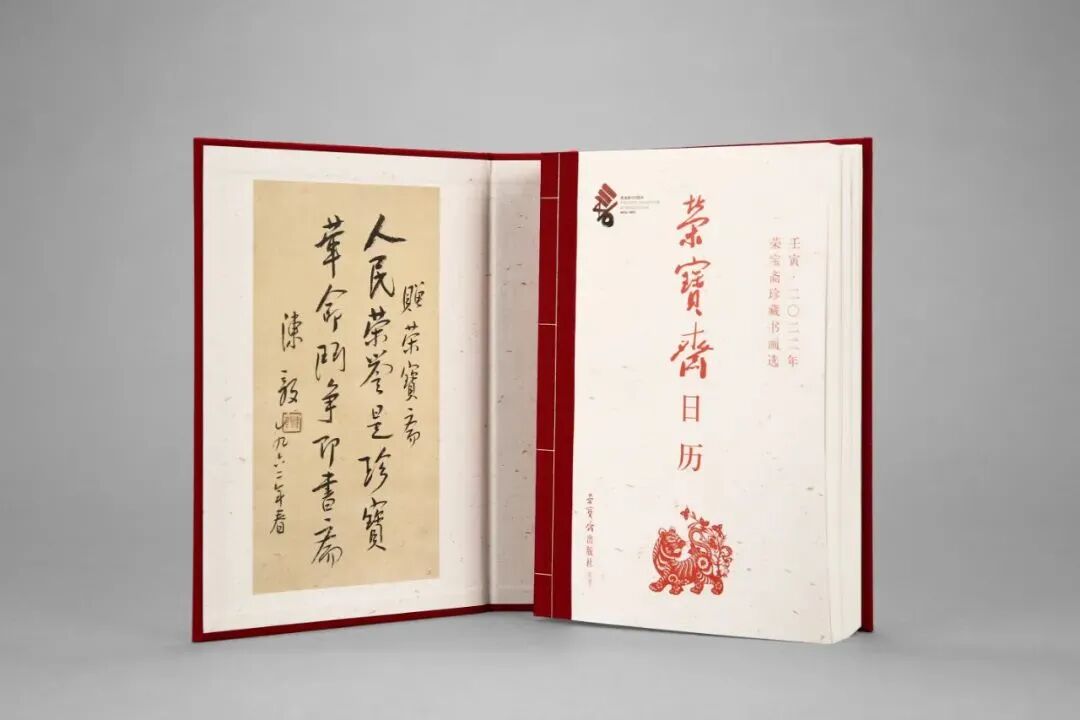 赠荣宝斋
人民荣誉是珍寶
革命鬥争即書斋
陳毅
一九六二年春
荣寶齋
日历
壬寅·二〇二二年
荣宝斋珍藏书画选
荣宝斋出版社